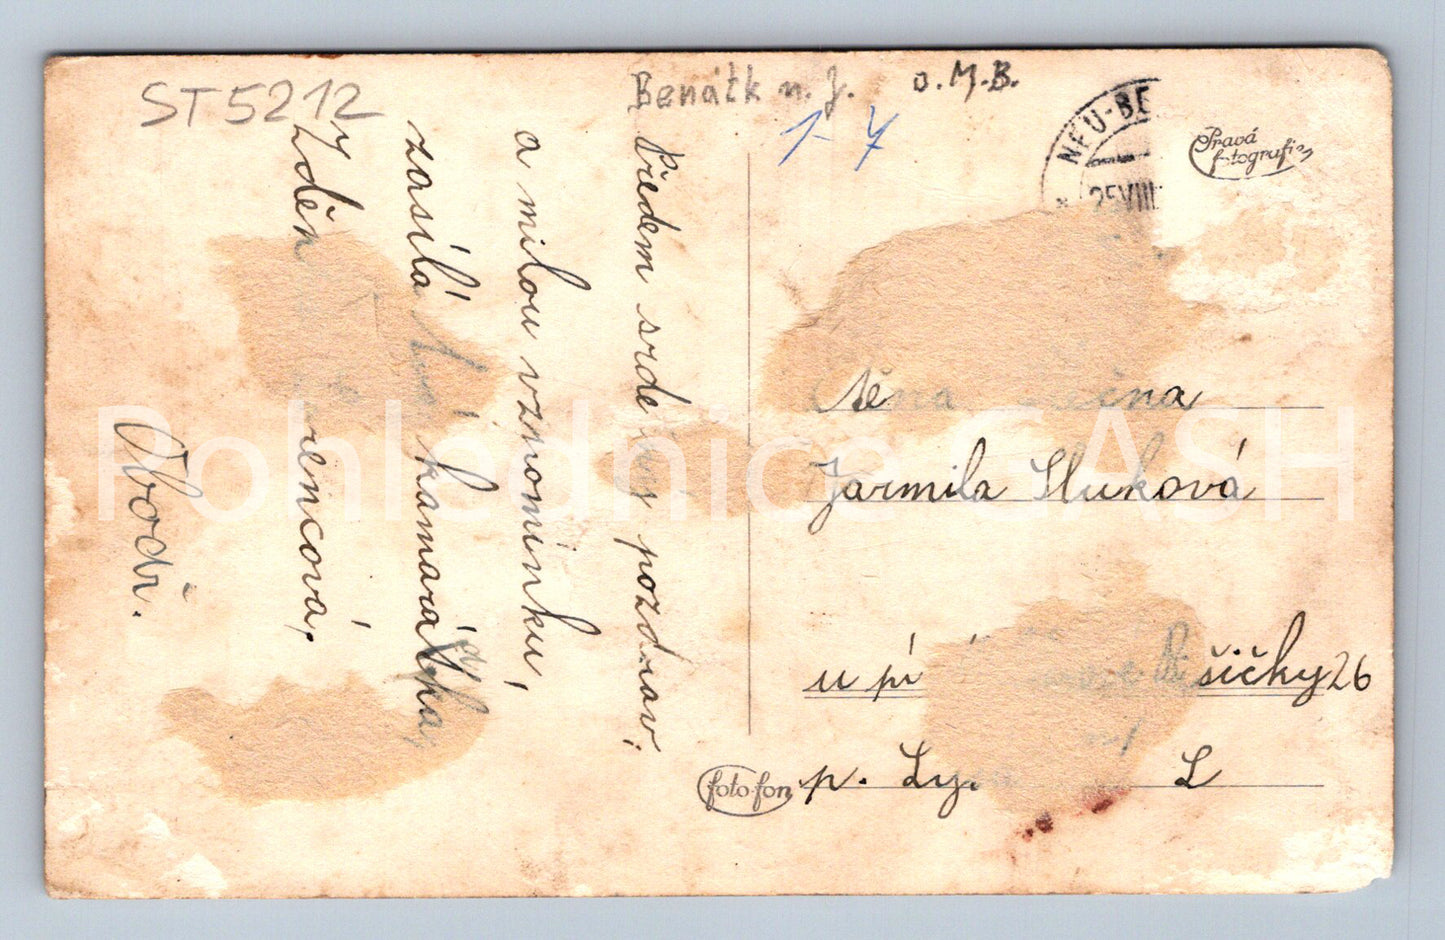 ST5212
Benátk n. J. o. M. B.
1-7
NEU-BE
25 VIII
Pravá
fotografie
Předem srde pozdrav,
a milou vzpomínku,
zasílá kamarádka,
Zděn encová,
Obodř.
na
Jarmila Hluková
u p šičky 26
p. Lys L
foto-fon
Pohlednice GASH